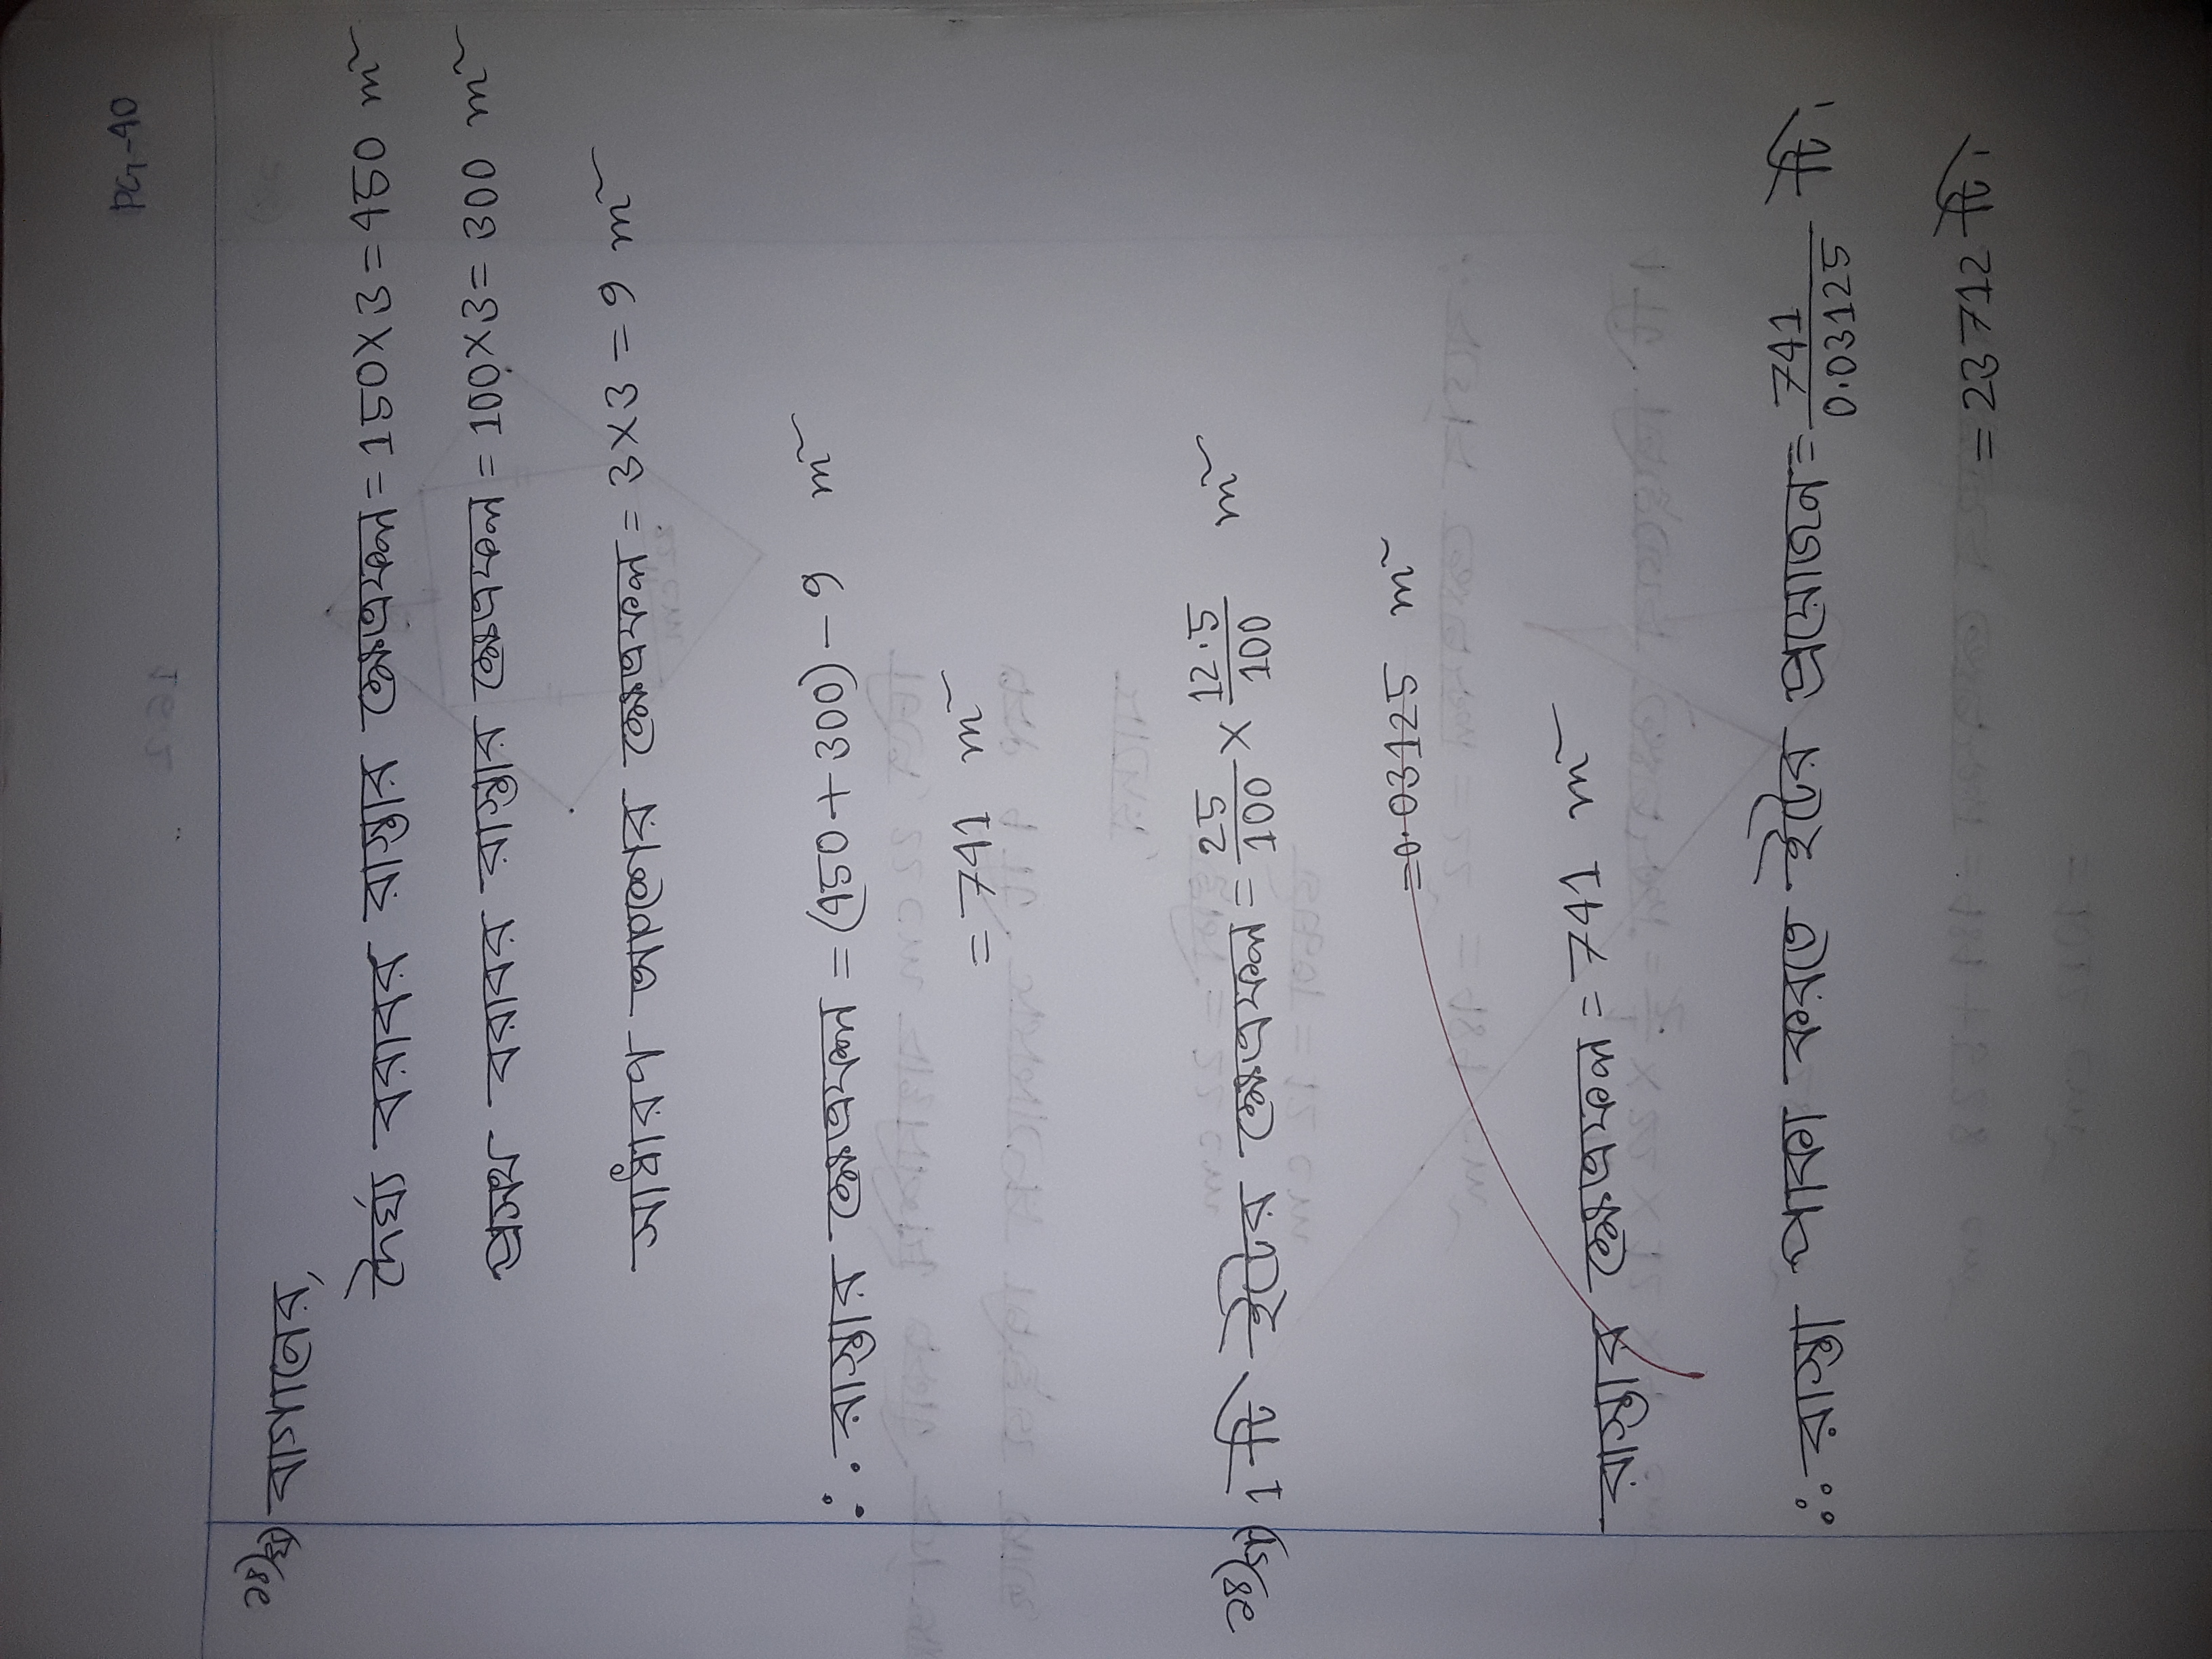 PG-40
২৪)খ) বাগানের,
দৈর্ঘ্য বরাবর রাস্তার ক্ষেত্রফল = 150×3 = 450 m²
প্রসথ বরাবর রাস্তার ক্ষেত্রফল = 100×3 = 300 m²
সাধারণ অংশের ক্ষেত্রফল = 3×3 = 9 m²
∴ রাস্তার ক্ষেত্রফল = (450+300) - 9 m²
= 741 m²
২৪)গ) 1 টি ইটের ক্ষেত্রফল = 25/100 × 12.5/100 m²
= 0.03125 m²
রাস্তার ক্ষেত্রফল = 741 m²
∴ রাস্তা পাকা করতে ইটের প্রয়োজন = 741/0.03125 টি।
= 23712 টি।